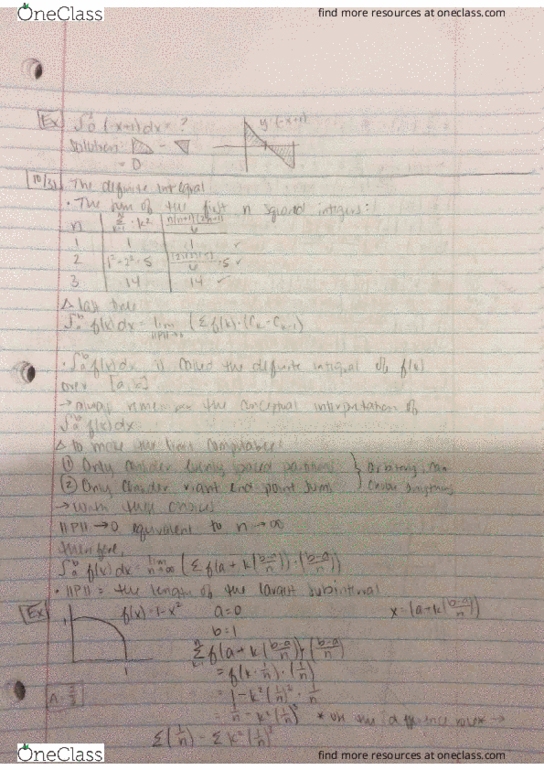 OneClass
find more resources at oneclass.com
Ex ∫₀² (-x+1)dx = ?
y=(-x+1)
Solution:
= 0
The definite integral
• The sum of the first n squared integers:
n Σ k² n(n+1)(2n+1)/6
1 1 1 ✓
2 1²+2²=5 5 ✓
3 14 14 ✓
Δ last time
∫ₐᵇ f(x)dx = lim ||P||→0 (Σ f(k)·(Cₖ-Cₖ₋₁)
• ∫ₐᵇ f(x)dx is called the definite integral of f(x)
over [a,b]
→ always remember the conceptual interpretation of
∫ₐᵇ f(x)dx
Δ to make the limit computable:
① Only consider evenly spaced partitions } arbitrary, can
② Only consider right end point sums
→ with these choices
||P||→0 equivalent to n→∞
therefore,
∫ₐᵇ f(x)dx = lim n→∞ (Σ f(a+k(b-a/n))·(b-a/n))
• ||P|| = the length of the largest subinterval
Ex f(x)=1-x² a=0 x=(a+k(b-a/n))
1 b=1
1
Σ f(a+k(b-a/n))·(b-a/n)
= f(k·1/n)·(1/n)
A=2/3 = 1-k²(1/n)²·1/n
= 1/n - k²(1/n)³ * the difference →
Σ(1/n) - Σk²(1/n)³
OneClass
find more resources at oneclass.com